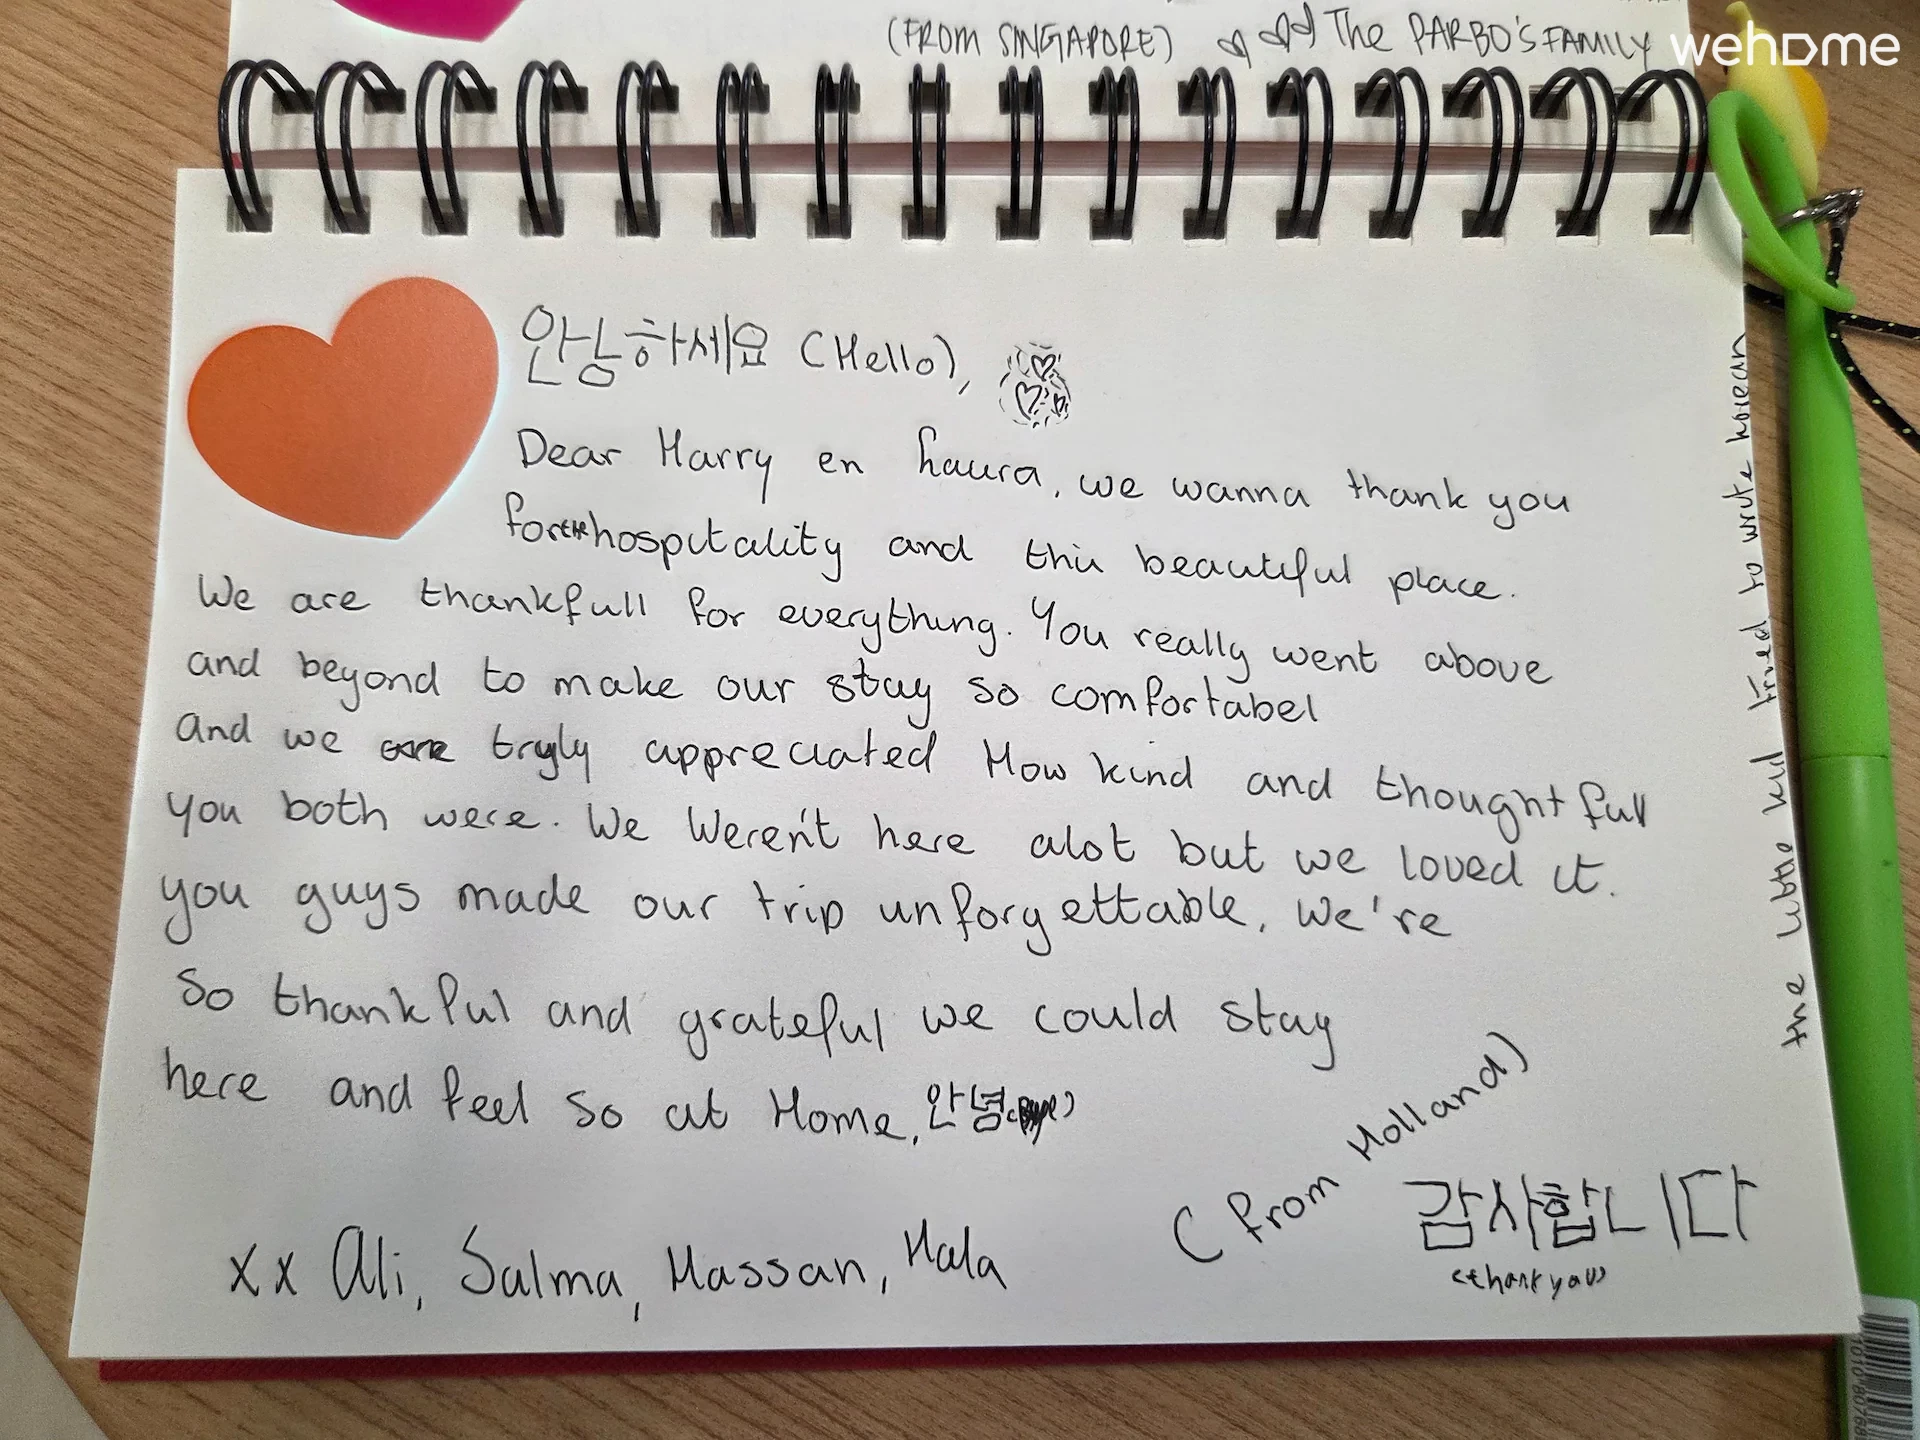 (FROM SINGAPORE) The PARBO'S FAMILY
wehome
안녕하세요 (Hello),
Dear Harry en Laura, we wanna thank you
for the hospitality and this beautiful place.
We are thankfull for everything. You really went above
and beyond to make our stay so comfortabel
and we truly appreciated How kind and thoughtfull
you both were. We Weren't here alot but we loved it.
you guys made our trip unforgettable, We're
so thankful and grateful we could stay
here and feel so at Home, 안녕 (Bye)
(from Holland)
xx Ali, Salma, Hassan, Hala
감사합니다
(thank you)
the little kid tried to write korean